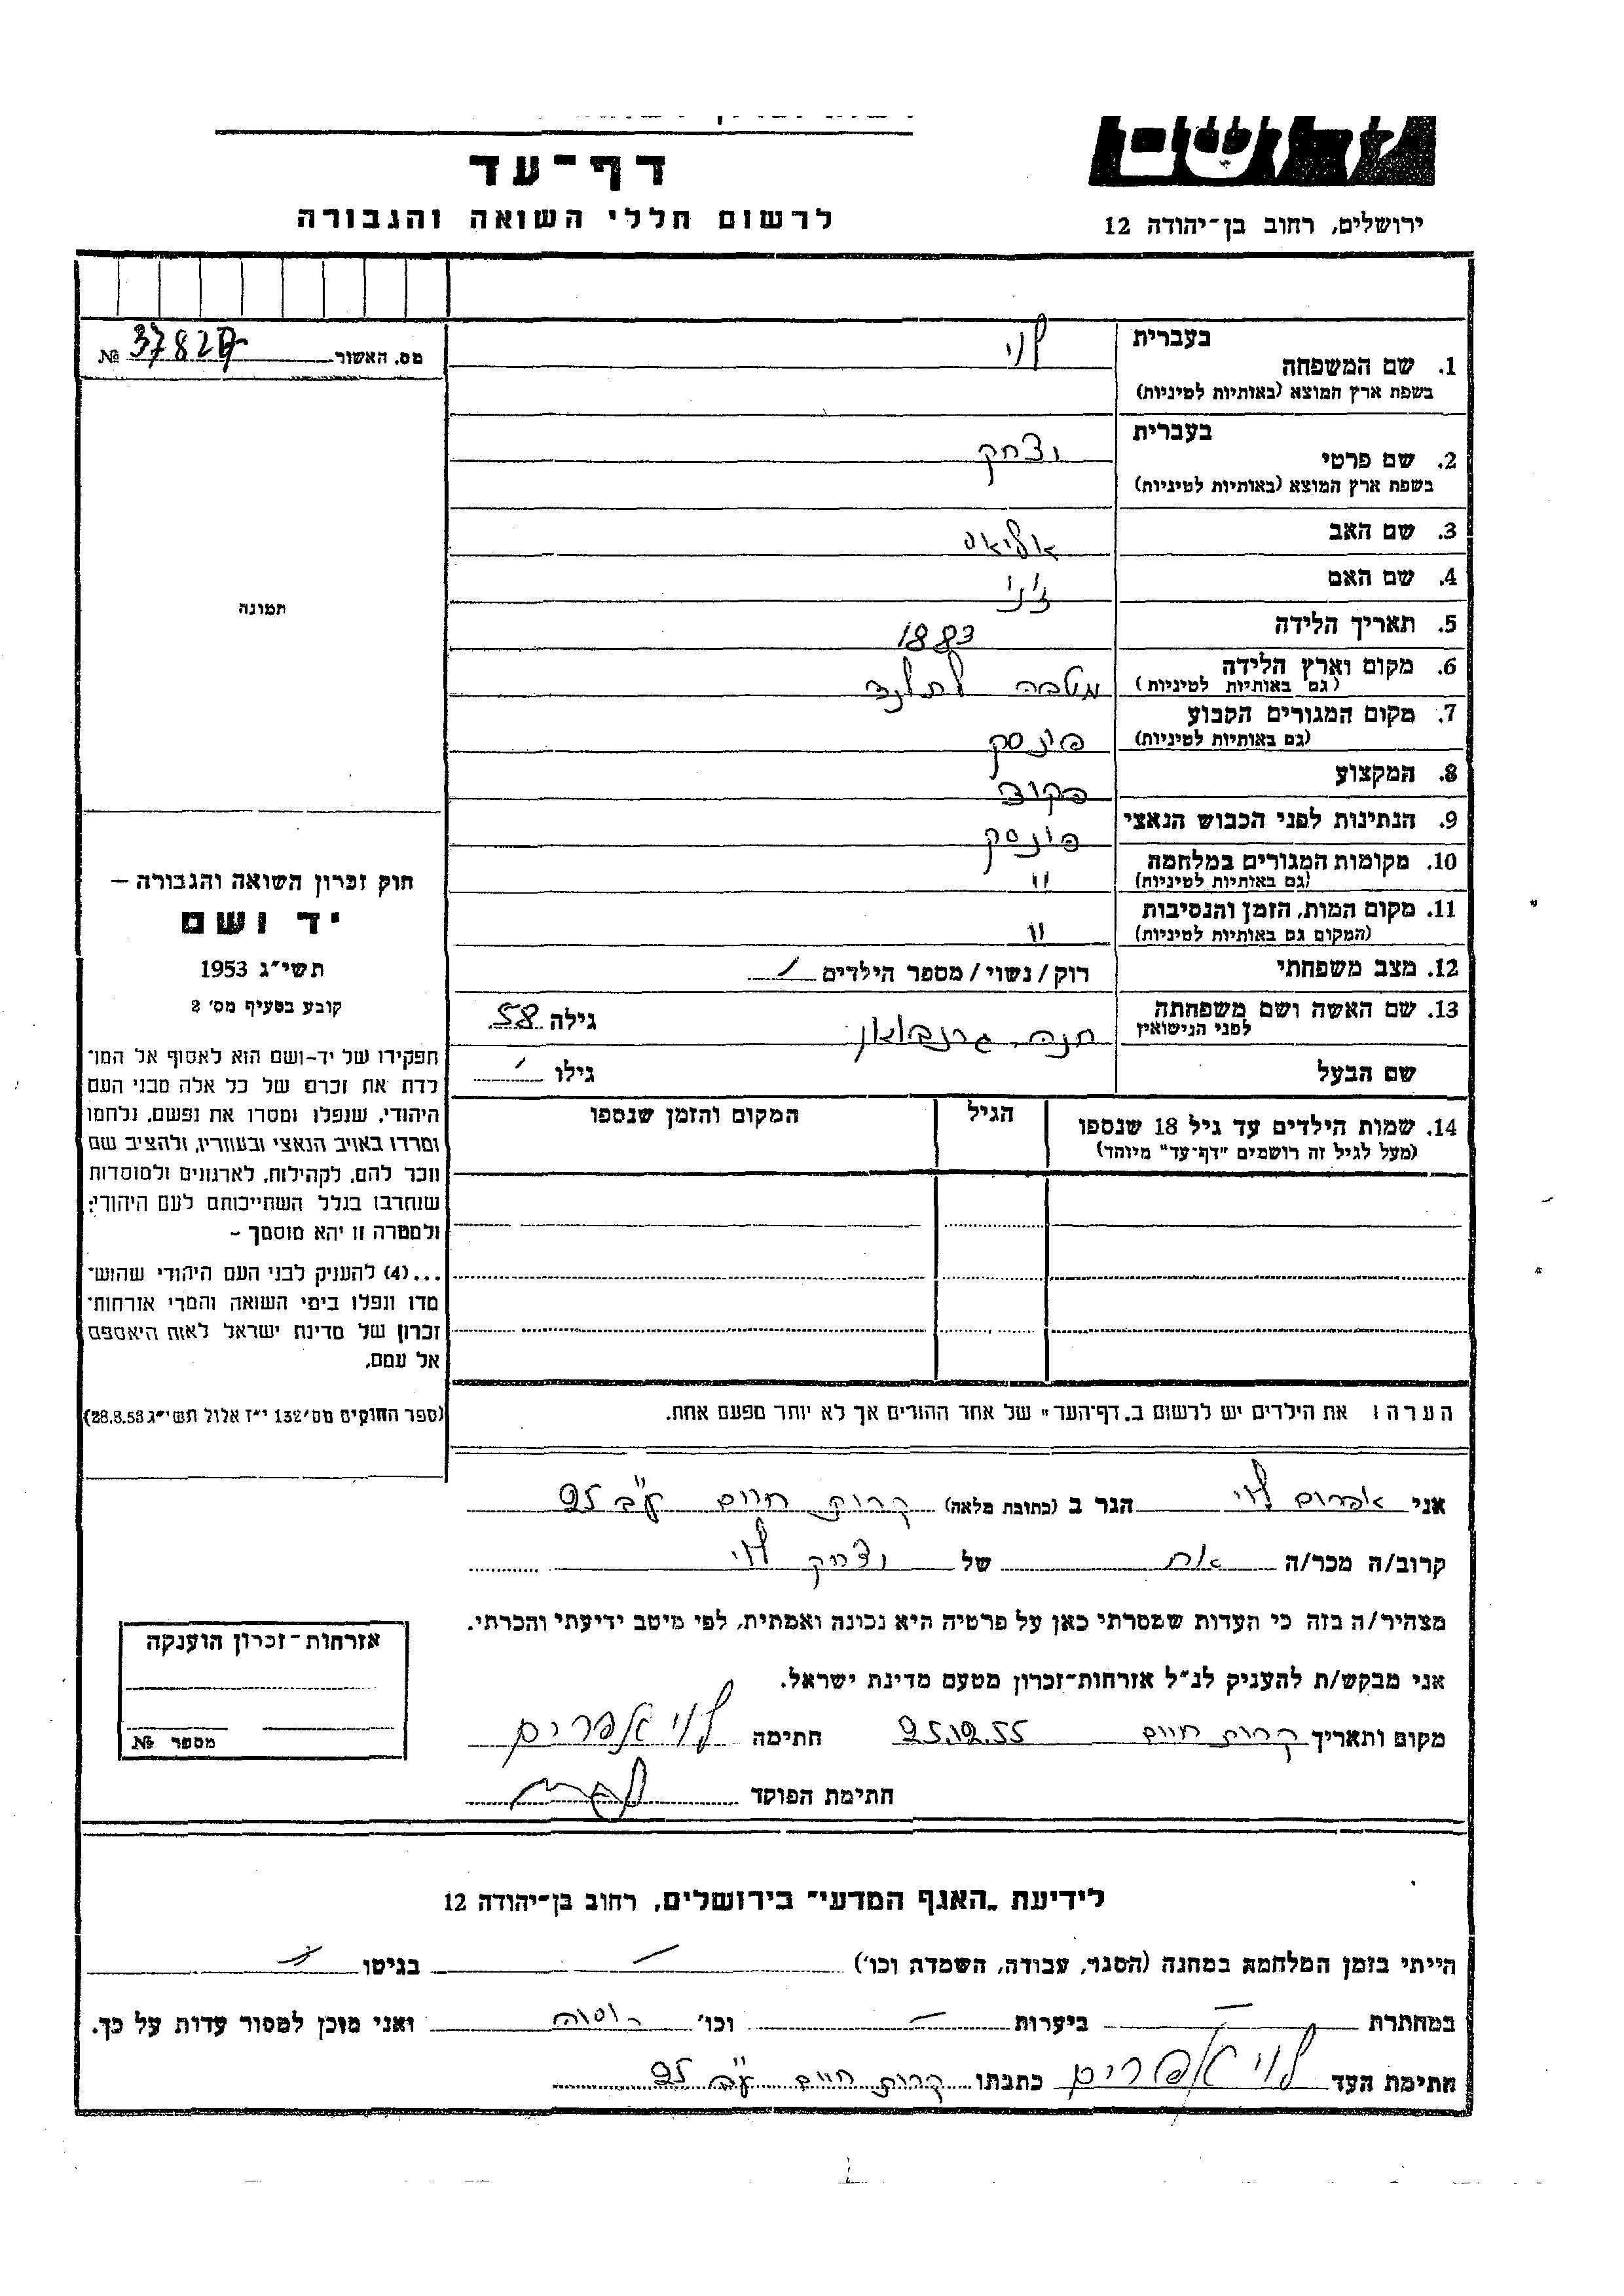 דף-עד
לרשום חללי השואה והגבורה
ירושלים, רחוב בן-יהודה 12
מס. האשור № 37827
תמונה
חוק זכרון השואה והגבורה –
יד ושם
תשי"ג 1953
קובע בסעיף מס' 2
תפקידו של יד-ושם הוא לאסוף אל המו־
לדת את זכרם של כל אלה מבני העם
היהודי, שנפלו ומסרו את נפשם, נלחמו
ומרדו באויב הנאצי ובעוזריו, ולהציב שם
וזכר להם, לקהילות, לארגונים ולמוסדות
שנחרבו בגלל השתייכותם לעם היהודי;
ולמטרה זו יהא מוסמך –
...(4) להעניק לבני העם היהודי שהוש־
מדו ונפלו בימי השואה והמרי אזרחות־
זכרון של מדינת ישראל לאות היאספם
אל עמם.
(ספר החוקים מס' 132 י"ז אלול תשי"ג 28.8.53)
בעברית לוי
1. שם המשפחה
בשפת ארץ המוצא (באותיות לטיניות)
בעברית
2. שם פרטי יצחק
בשפת ארץ המוצא (באותיות לטיניות)
3. שם האב
4. שם האם
5. תאריך הלידה 1883
6. מקום וארץ הלידה
(גם באותיות לטיניות)
7. מקום המגורים הקבוע פינסק
(גם באותיות לטיניות)
8. המקצוע פקיד
9. הנתינות לפני הכבוש הנאצי פינסק
10. מקומות המגורים במלחמה "
(גם באותיות לטיניות)
11. מקום המות, הזמן והנסיבות "
(המקום גם באותיות לטיניות)
12. מצב משפחתי רוק/נשוי/מספר הילדים
13. שם האשה ושם משפחתה חנה גילה 58
לפני הנישואין
שם הבעל גילו
14. שמות הילדים עד גיל 18 שנספו הגיל המקום והזמן שנספו
(מעל לגיל זה רושמים "דף-עד" מיוחד)
הערה: את הילדים יש לרשום ב„דף-העד" של אחד ההורים אך לא יותר מפעם אחת.
אני אפרים לוי הגר ב (כתובת מלאה) קרית חיים ע"ב 25
קרוב/ה מכר/ה אח של יצחק לוי
מצהיר/ה בזה כי העדות שמסרתי כאן על פרטיה היא נכונה ואמתית, לפי מיטב ידיעתי והכרתי.
אני מבקש/ת להעניק לנ"ל אזרחות-זכרון מטעם מדינת ישראל.
מקום ותאריך קרית חיים 25.12.55 חתימה לוי אפרים
חתימת הפוקד
אזרחות-זכרון הוענקה
מספר №
לידיעת „האגף המדעי" בירושלים, רחוב בן-יהודה 12
הייתי בזמן המלחמה במחנה (הסגר, עבודה, השמדה וכו') בגיטו
במחתרת ביערות וכו' רוסיה ואני מוכן למסור עדות על כך.
חתימת העד לוי אפרים כתבתו קרית חיים ע"ב 25